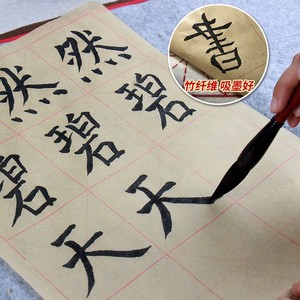 書
竹纤维 吸墨好
然然
碧碧碧
天天